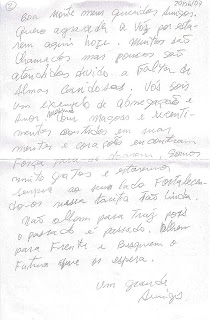 Boa noite meus queridos amigos.
Quero agradecer a vós por esta-
rem aqui hoje. Muitos são
chamados mas poucos são
atendidos devido a falta de
almas caridosas. Vós sois
um exemplo de abnegação e
amor mesmo com mágoas e ressenti-
mentos contidos em suas
mentes e coração encontram
força para
muito gratos e estaremos
sempre ao seu lado fortalecen-
do-os nessa tarefa tão linda.
Não olhem para traz pois
o passado é passado. Olhem
para frente e busquem o
futuro que os espera.
Um grande
amigo